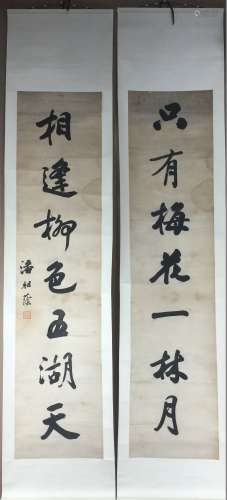 只有梅花一林月
相逢柳色五湖天
潘祖蔭